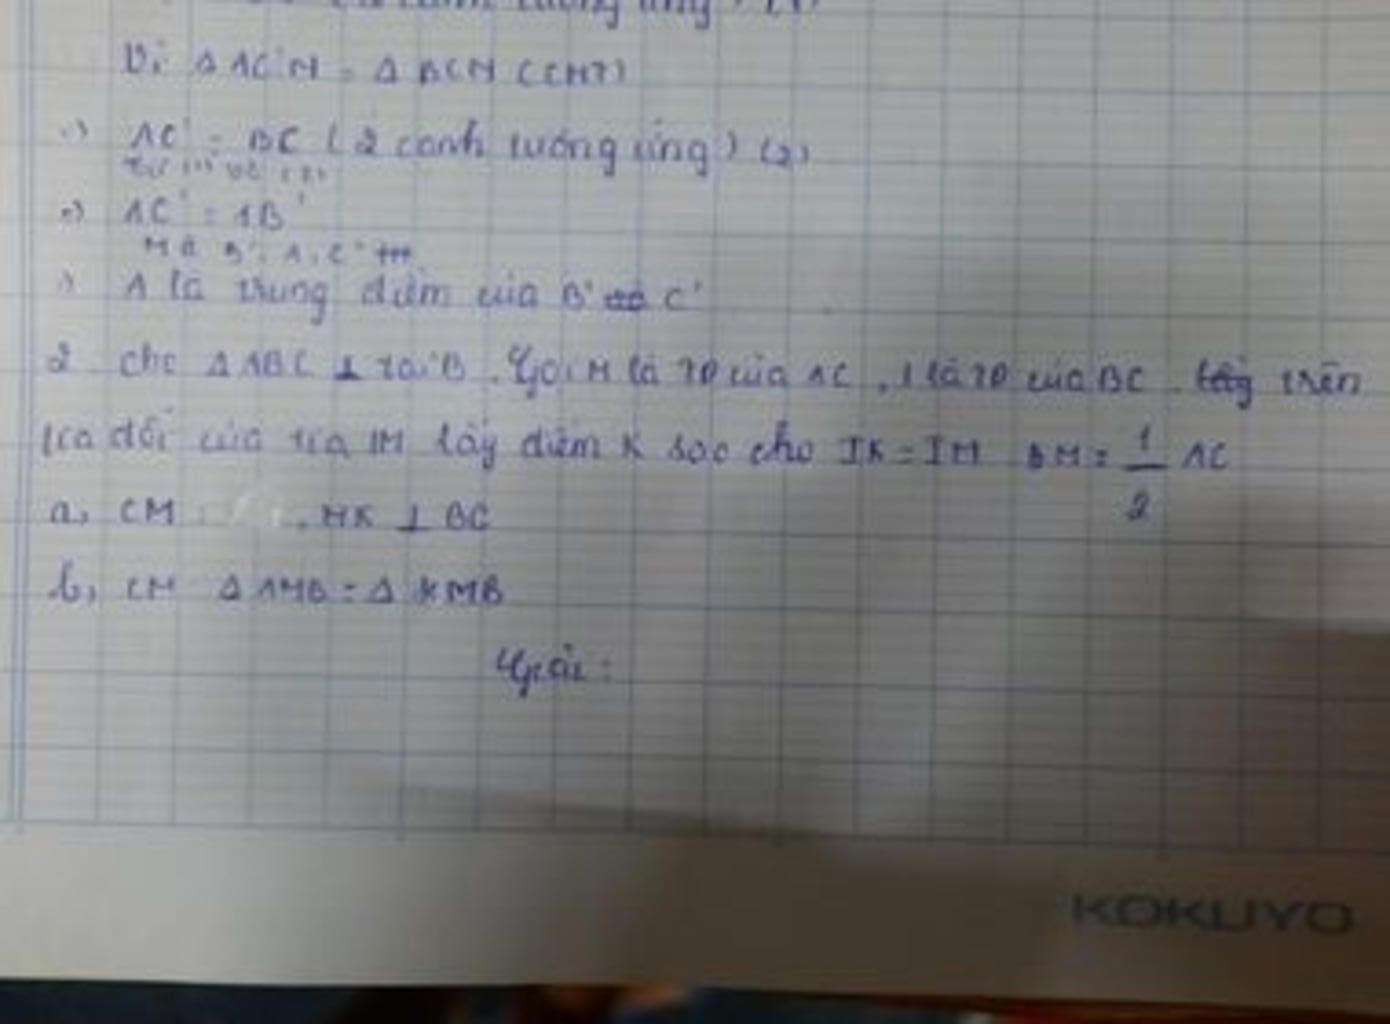 Vì Δ AC'N = Δ BCN (CMT)
=) AC' = BC (2 cạnh tương ứng) (2)
từ (1) và (2)
=) AC' = AB'
Mà B', A, C'
=) A là trung điểm của B' C'
2 cho Δ ABC ⊥ tại B. Gọi M là TĐ của AC, I là TĐ của BC. trên
tia đối của tia IM lấy điểm K sao cho IK = IM BM = 1/2 AC
a, CM : MK ⊥ BC
b, CM Δ AMB = Δ KMB
Giải :
KOKUYO